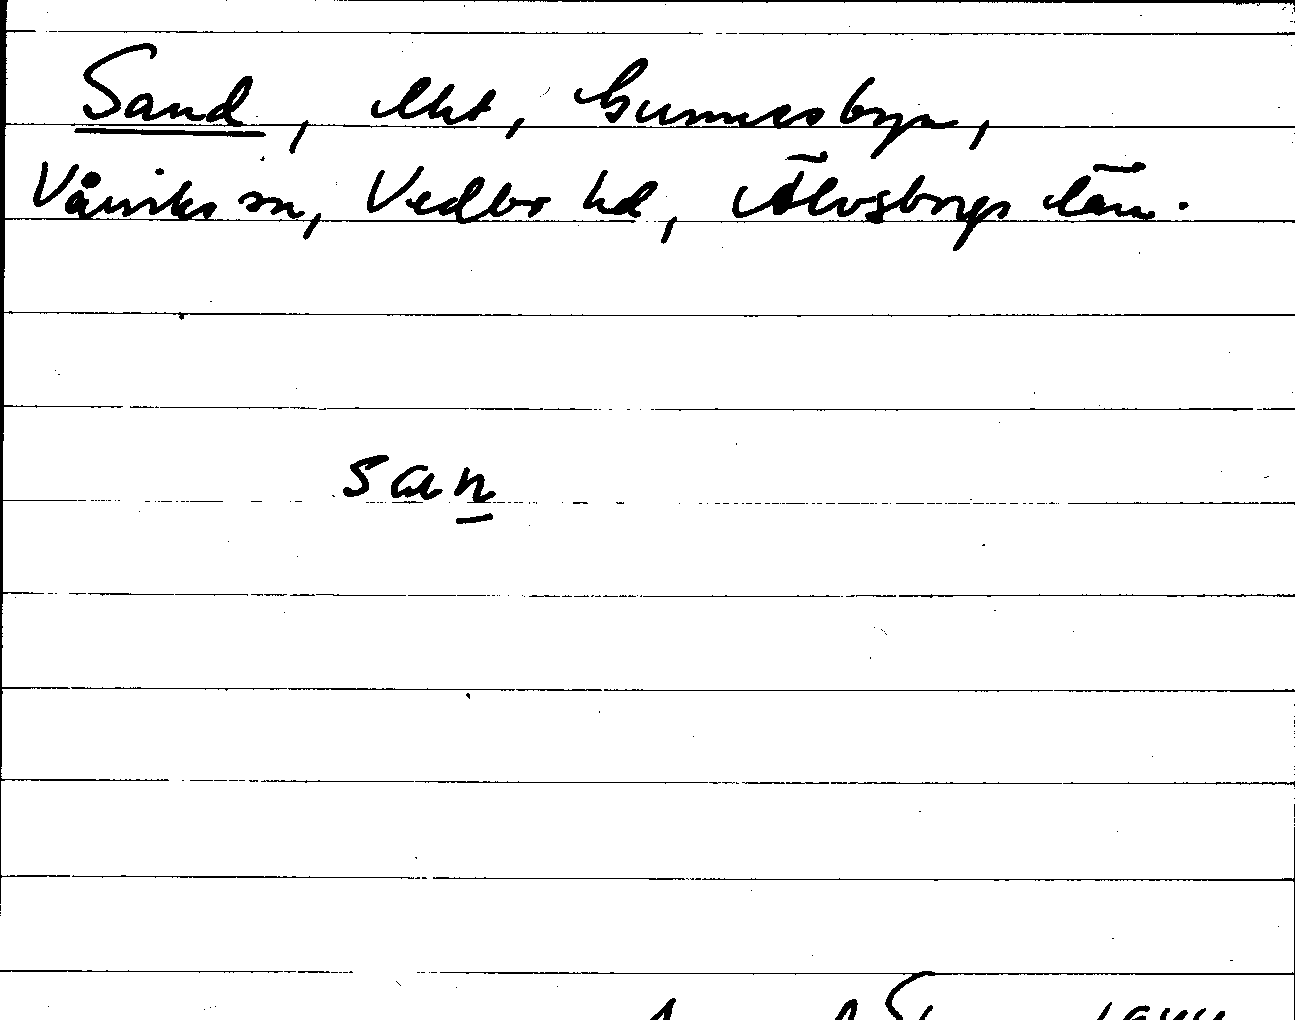 Sand, lht, Gunnesbyn,
Vårviks sn, Vedbo hd, Älvsborgs län.
san